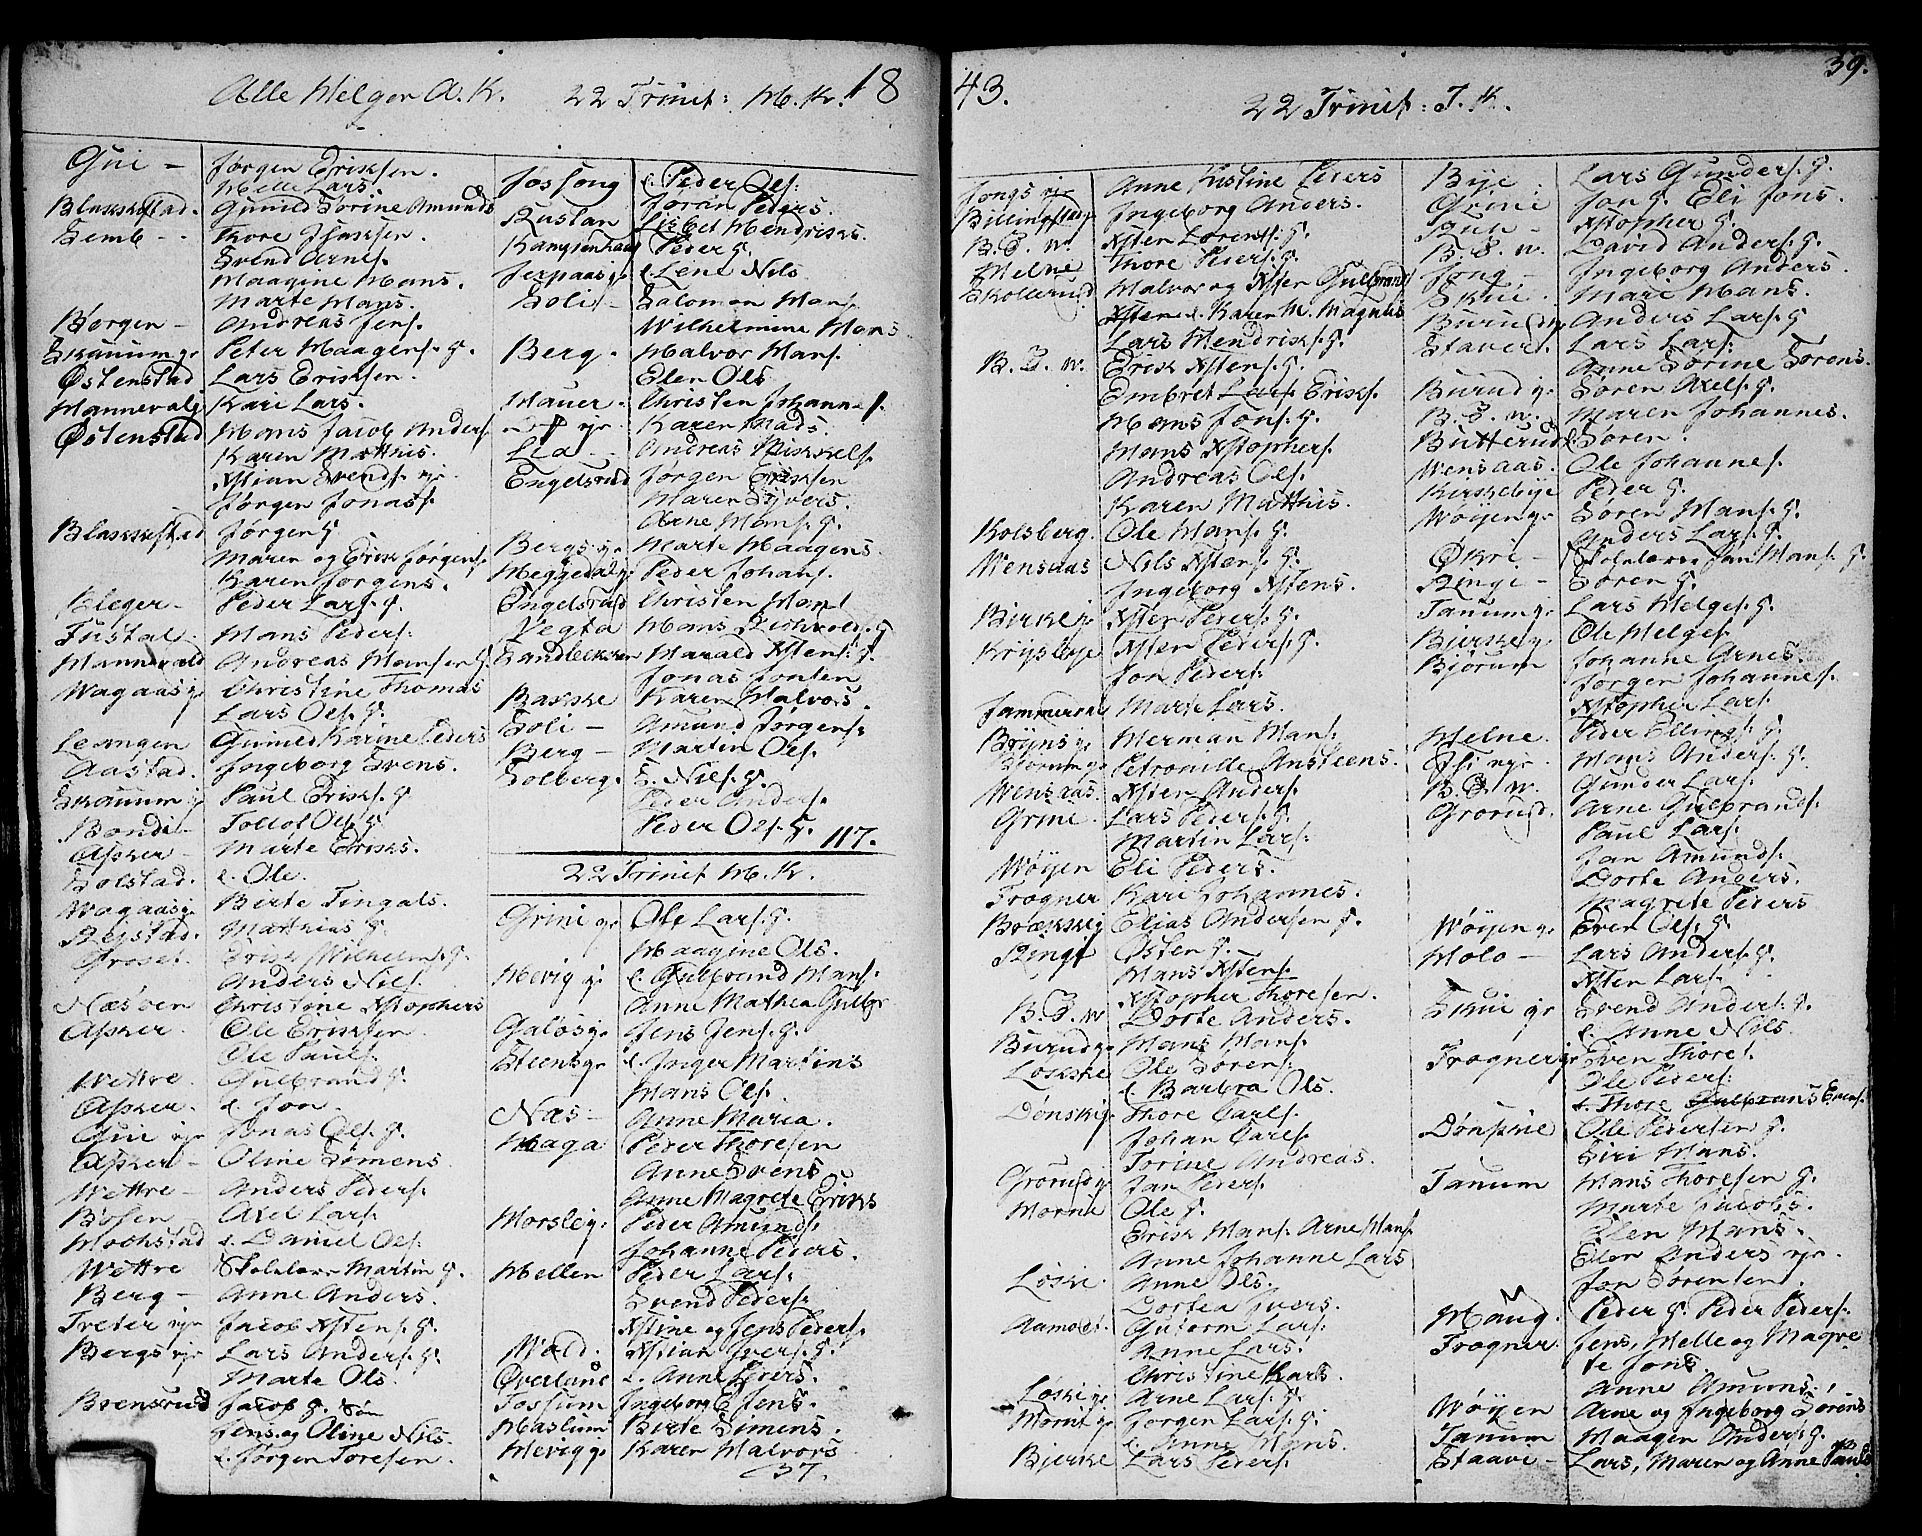 Alle Helgen A. K. 22 Trinit: H. K. 18
Gui – Jørgen Eriksen.
Helle Lars.
Blakkestad. Gunild Sorine Amunds
Semb – Thore Isaksen.
Svend Arnes.
Haagine Hans.
Marte Hans.
Børgen – Andreas Jens.
Skauum gr Peter Haagens. G.
Østenstad Lars Eriksen.
Mannevalg Kari Lars.
Østenstad Hans Jacob Anders.
Karen Matthis.
Xstian Svends.
Jørgen Jonas.
Blakkestad Jørgen G.
Maren og Erik Jørgens.
Karen Jørgens.
Bleger – Peder Lars. G.
Tustal. Hans Peders.
Mannevald Andreas Hansen G.
Wagaas Christine Thomas
Lars Ols. G.
Leangen Guniled Karine Peders
Aastad. Ingeborg Svens.
Skauum Paul Eriks. G
Bondi – Tollof Ols. G
Asker – Marte Eriks.
Solstad. e. Ole.
Wagaas Birte Tingals.
Rejstad. Matthias G
Groset. Erik Wilhelms. G.
Anders Nils.
Næsøen Christine Xstophers
Asker. Ole Eriksen
Ole Pauls.
Wettre. Gulbrand G.
Asker. e. Jon.
Gui Jonas Ols. G.
Asker – Oline Simens.
Wettre – Anders Peders.
Bosen Axel Lars.
Hochstad e. Daniel Ols.
Wettre Skolelærer Martin G.
Berg – Anne Anders.
Treter Jacob Xstens. G.
Bergs Lars Anders. G
Marte Ols.
Brensrud Jacob G. Søn
Jens og Oline Nils.
e. Jørgen Toresen.
Jossong e. Peder Ols.
Joran Peders.
Rustan Lisbet Hendriks.
Peder G.
e. Lene Nils
Solis – Salomon Hans.
Wilhelmine Hans
Berg. Halvor Hans.
Elen Ols
Hauer. Christen Johann–s.
Karen Mads.
Lia – Andreas Mikkels.
Engelsrud Jørgen Eriksen
Maren Syvers.
Arne Hans. G.
Bergs gr. Marte Haagens.
Heggedal Peder Johans.
Engelsrud Christen Hans
Vegta Hans Richolds. G
Harald Xstens. G.
Jonas Jonsen
Bakke Karen Halvors.
Soli – Amund Jørgens.
Berg – Martin Ols.
Solberg. E. Nils. G.
Peder Anders.
Peder Ols. G. 117.
22 Trinit H. K.
Grini gr Ole Lars. G.
Haagine Ols.
Hevig g. e. Gulbrand Hans.
Anne Mathea Gulbr
Galøs g. Jens Jens. G.
Steens gr e. Inger Martins
Hans Ols.
Næs – Anne Maria.
Haga Peder Thoresen
Anne Svens
Anne Magrete Eriks
Horsle g. Peder Amunds.
Johanne Peders.
Hellen Peder Lars.
Svend Peders.
Xstine og Jens Peders.
Wold. Xstian Ivers. G.
Øverland e. Anne Ivers.
Fossum Ingeborg E Jens.
Haslum Birte Simens.
Hevig g. Karen Halvors
37.
43. 22 Trinit: T. K. 39.
Jongs Anne Kistine Peders
Billingstad Ingeborg Anders.
B. S. W. Xsten Lorents. G.
Helne Thore Peders. G.
Skollerud Halvor og Xsten Gulbrands
Xsten e. Karen M. Magnus
Lars Hendriks. G.
B. S. W. Erik Xstens. G.
Embret Lars Eriks.
Hans Jons. G.
Hans Xstophers.
Andreas Ols.
Karen Matthis.
Kolsberg. Ole Hans. G.
Wensaas Nils Xstens. G.
Ingeborg Xstens.
Birke g. Xsten Peders. G.
Krysbye Xsten Peders. G.
Jon Peders.
Jammerdal Marte Lars.
Bryns g. Herman Hans.
Petronille Ansteens.
Wensaas. Xsten Anders.
Grini. Lars Peders. G.
Martin Lars.
Wøyen Eli Peders.
Frogner Kari Johannes.
Brække Elias Andersen G.
Ringi Østen G.
Hans Xstens.
Xstopher Thoresen.
B. S. W Dorte Anders.
Burud g. Hans Hans.
Løkke Ole Sørens.
e. Barbra Ols.
Dønski g. Thore Carls.
Johan Carls.
Torine Andreas.
Grorud g. Jan Peders.
Horni Ole G.
Erik Hans. Arne Hans.
Anne Johanne Lars
Løkke. Anne Ols.
Dortea Ivers.
Aamodt. Guttorm Lars.
Anne Lars.
Christine Lars.
Løkke g. Arne Lars. G.
Horni g. Jørgen Lars. G.
e. Anne Hans.
Bjerke Lars Peders.
Bye. Lars Gunders. G.
Grini Jon G. Eli Jons.
Xstopher G.
B. S. W. David Anders. G.
Jong – Ingeborg Anders.
Skui. Mari Hans.
Burud Anders Lars. G
Staver. Lars Lars.
Anne Sorine Sorens.
Burud g. Soren Axels. G.
B. S. W. Maren Johannes.
Butterud Soren.
Wensaas. Ole Johannes.
Kirkebye Peder G.
Wøyen gr Soren Hans. G.
Anders Lars. G.
Økri – Skolelærer Jan Hans. G.
Ringi – Soren G.
Tanum g. Lars Helges. G.
Bjerke g. Ole Helges.
Bjørum Johanne Arnes.
Jørgen Johannes.
Xstopher Lars.
Helne. Peder Ellings. G
Hans Anders. G.
B. S. W. Gunder Lars.
Grorud. Arne Gulbrands.
Paul Lars.
Jan Amunds.
Dorte Anders.
Magrete Peders
Wøyen g. Even Ols. G.
Holo – Lars Anders. G.
Xsten Lars.
Skui gr Svend Anders. G.
e. Anne Nils.
Frogner gr Even Thores.
Ole Peders.
e. Thore Gulbrans Evens.
Dønskie Ole Pedersen G.
Siri Hans.
Tanum Hans Thoresen G.
Marte Jacobs.
Elen Hans.
Ellen Anders
Jon Sørensen.
Haug. Peder G. Peder Peders.
Frogner. Jens, Helle og Magre
te Jons.
Anne Amuns.
Wøyen Arne og Ingeborg Sorens
Tanum Haagen Anders. G.
Staavi – Lars, Maren og Anne Pauls